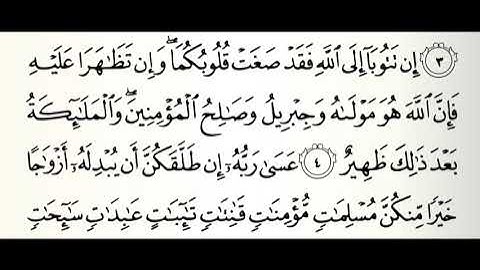 ٣ إِن تَتُوبَآ إِلَى ٱللَّهِ فَقَدۡ صَغَتۡ قُلُوبُكُمَاۖ وَإِن تَظَٰهَرَا عَلَيۡهِ
فَإِنَّ ٱللَّهَ هُوَ مَوۡلَىٰهُ وَجِبۡرِيلُ وَصَٰلِحُ ٱلۡمُؤۡمِنِينَۖ وَٱلۡمَلَٰٓئِكَةُ
بَعۡدَ ذَٰلِكَ ظَهِيرٌ ٤ عَسَىٰ رَبُّهُۥٓ إِن طَلَّقَكُنَّ أَن يُبۡدِلَهُۥٓ أَزۡوَٰجًا
خَيۡرٗا مِّنكُنَّ مُسۡلِمَٰتٖ مُّؤۡمِنَٰتٖ قَٰنِتَٰتٖ تَٰٓئِبَٰتٍ عَٰبِدَٰتٖ سَٰٓئِحَٰتٖ